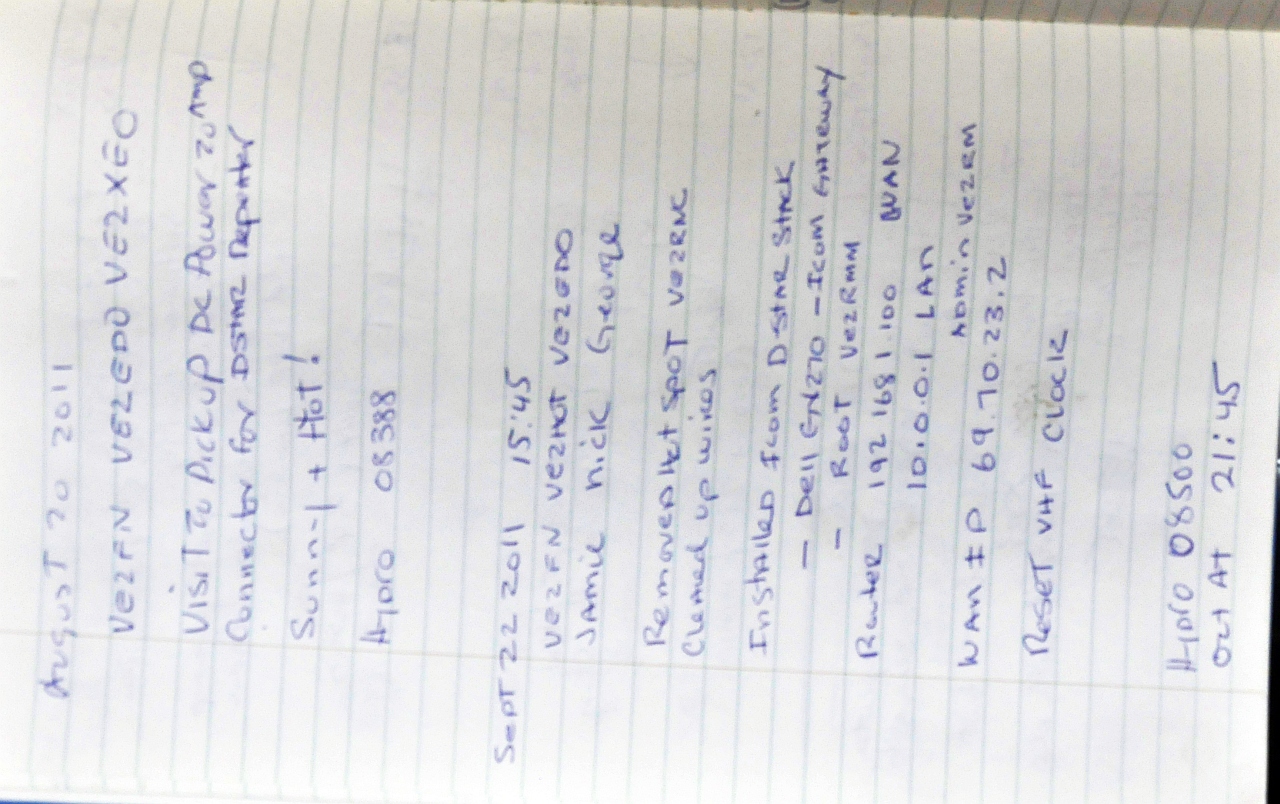 August 20 2011
VE2FN VE2EDO VE2XEO
Visit To Pickup DC Power 20 Amp
Connector for DSTAR Repeater
Sunny + Hot!
Hydro 08388
Sept 22 2011 15:45
VE2FN VE2HOT VE2EDO
Jamie nick George
Remove Hot Spot VE2RNC
Cleaned up wires
Installed Icom D-Star Stack
- Dell GX270 - Icom Gateway
- Root VE2RMM
Router 192 168 1.100 WAN
10.0.0.1 LAN
Admin VE2RM
WAN IP 69.70.23.2
Reset VHF Clock
Hydro 08500
Out At 21:45